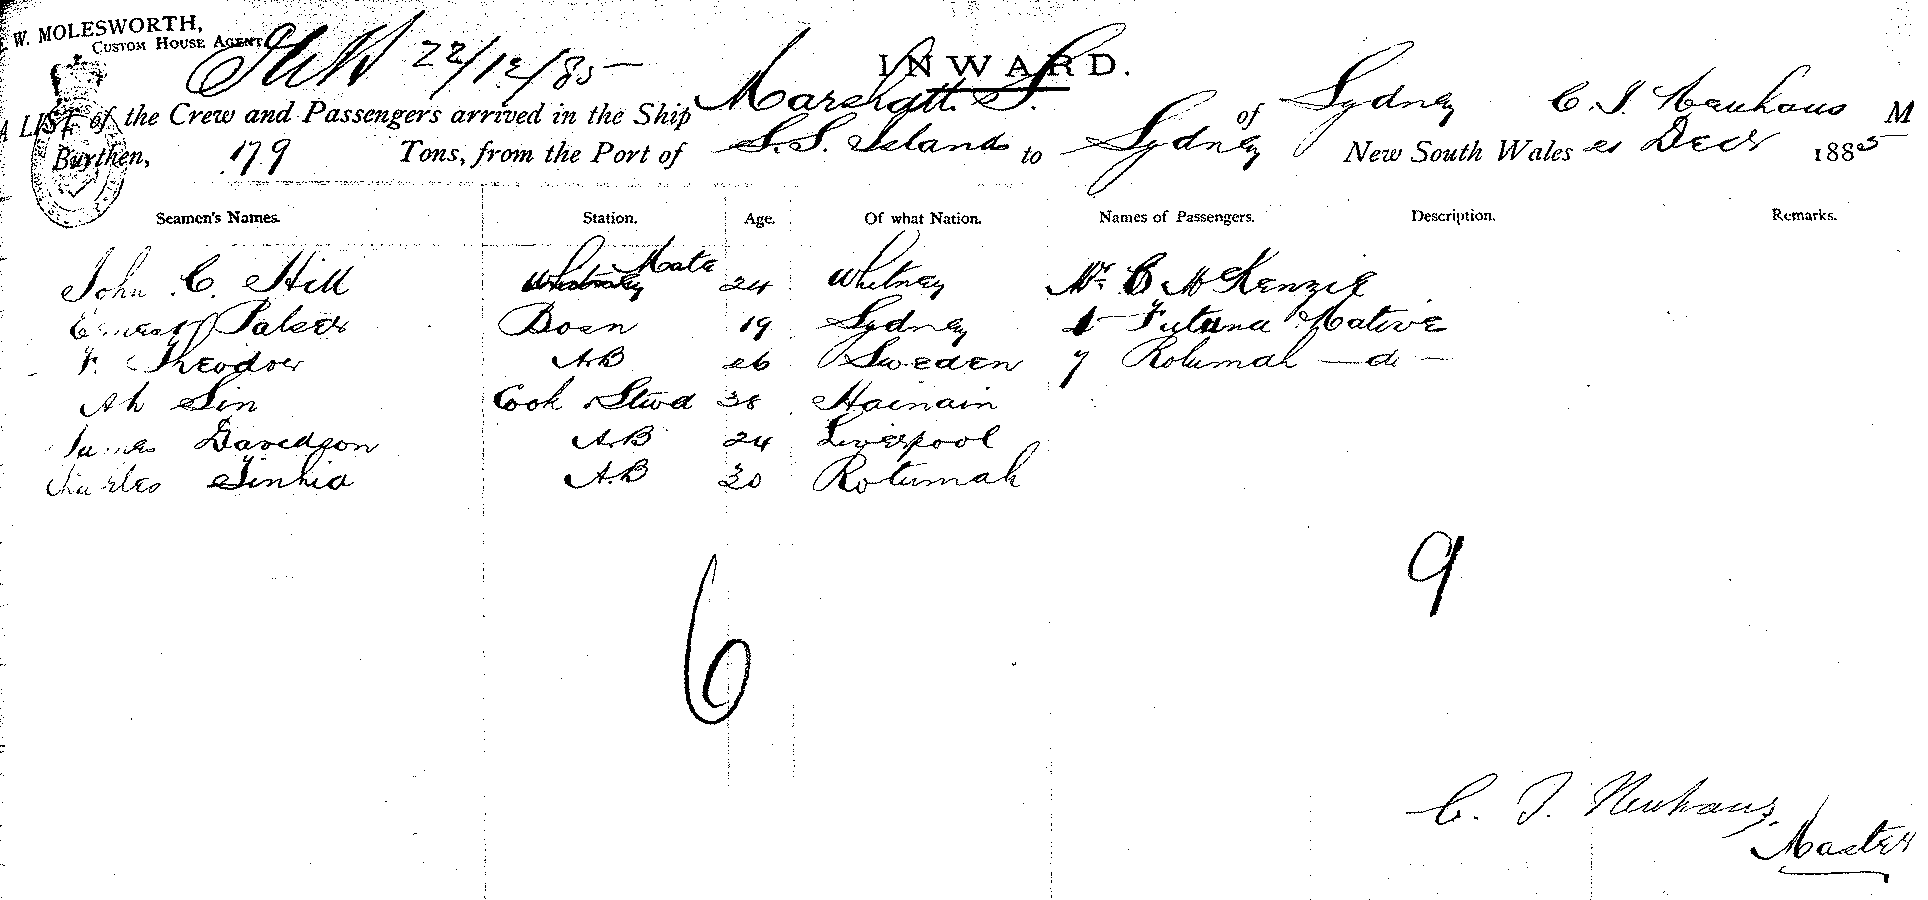 W. MOLESWORTH,
CUSTOM HOUSE AGENT
22/12/85
INWARD.
A LIST of the Crew and Passengers arrived in the Ship Marshall S. of Sydney C. T. Neuhaus M
Burthen, 179 Tons, from the Port of S. S. Island to Sydney New South Wales Decr 1885
Seamen's Names. Station. Age. Of what Nation. Names of Passengers. Description. Remarks.
John C. Hill Mate 24 Whitney Mr C McKenzie
Ernest Palser Bosn 19 Sydney 1 Futuna Native
F. Theodor AB 26 Sweden 7 Rotumah — do —
Ah Sin Cook & Stwd 38 Hainain
James Davidson AB 24 Liverpool
Charles AB 30 Rotumah
6
9
C. T. Neuhaus,
Master